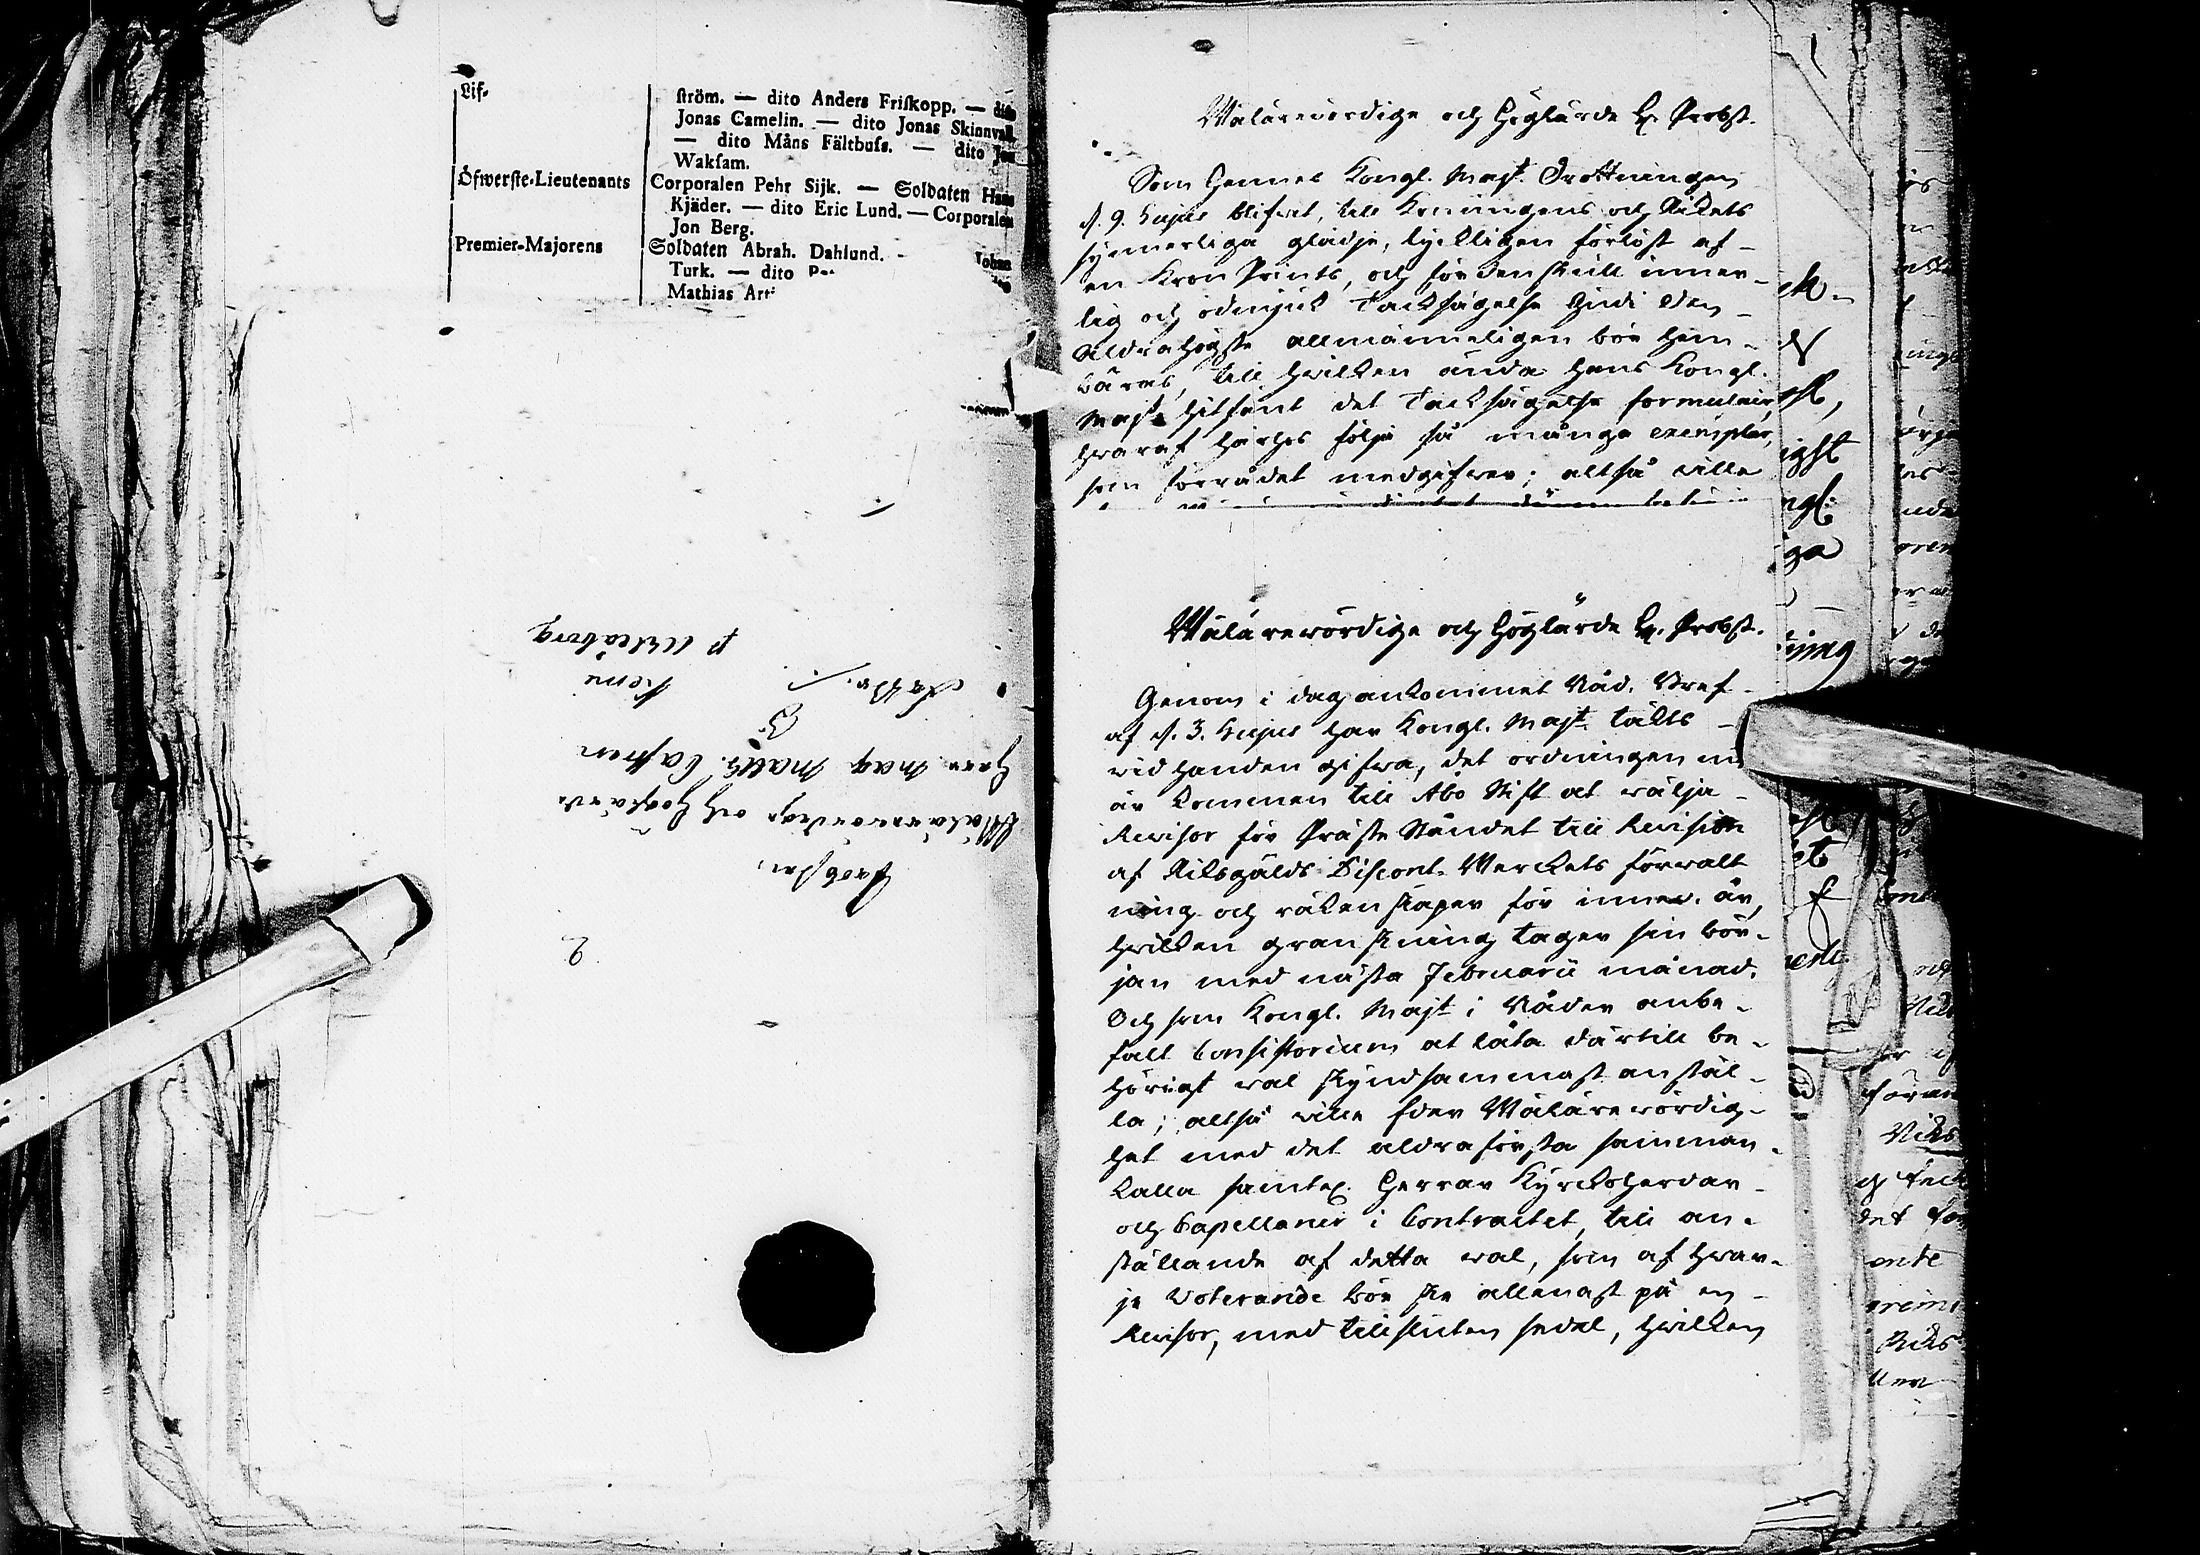 Lif-
ström. — dito Anders Friskopp. — dito
Jonas Camelin. — dito Jonas Skinnvall.
— dito Måns Fältbuss. — dito Jon
Waksam.
Öfwerste-Lieutenants Corporalen Pehr Sijk. — Soldaten Hans
Kjäder. — dito Eric Lund. — Corporalen
Jon Berg.
Premier-Majorens Soldaten Abrah. Dahlund. - Johan
Turk. — dito
Mathias
Probsten
Wälärewördige och Höglärde
Herr Mag. Matth. Castrén
Kemi
p Uhleåborg
2
Wälärewördige och Höglärde Hr Probst.
Som Hennes Kongl. Majt. Drottningen
d. 9. hujus blifwit, till Konungens och Rikets
synnerliga glädje, lyckligen förlöst af
en Kron Prints, och för den skull inner-
lig och ödmjuk Tacksägelse Gudi Den
Aldrahögste allmänneligen bör hem-
bäras, till hwilken ända Hans Kongl.
Majt hitsänt det Tacksägelse formulair,
hwaraf härhos följa så många exemplar,
som förrådet medgifwer; altså wille
Wälärewördige och Höglärde Hr. Probst.
Genom i dag ankommet Nåd. Bref
af d. 3. hujus har Kongl. Majt täckts
wid handen gifwa, det ordningen nu
är kommen till Åbo Stift at wälja
Revisor för Präste Ståndet till Revision
af Riksgälds Discont-Werckets förwalt
ning och räkenskaper för innew. år,
hwilken granskning tager sin bör-
jan med nästa Februarii månad.
Och som Kongl. Majt i Nåder anbe-
falt Consistorium at låta därtill be-
hörigt wal skyndsammast anstäl-
la; altså wille Eder Wälärewördig-
het med det aldraförsta samman-
kalla samtel. Herrar Kyrckoherdar
och Capellaner i Contractet, till an-
ställande af detta wal, som af hwar-
je Voterande bör ske allenast på en
Revisor, med tillsluten sedel, hwilken